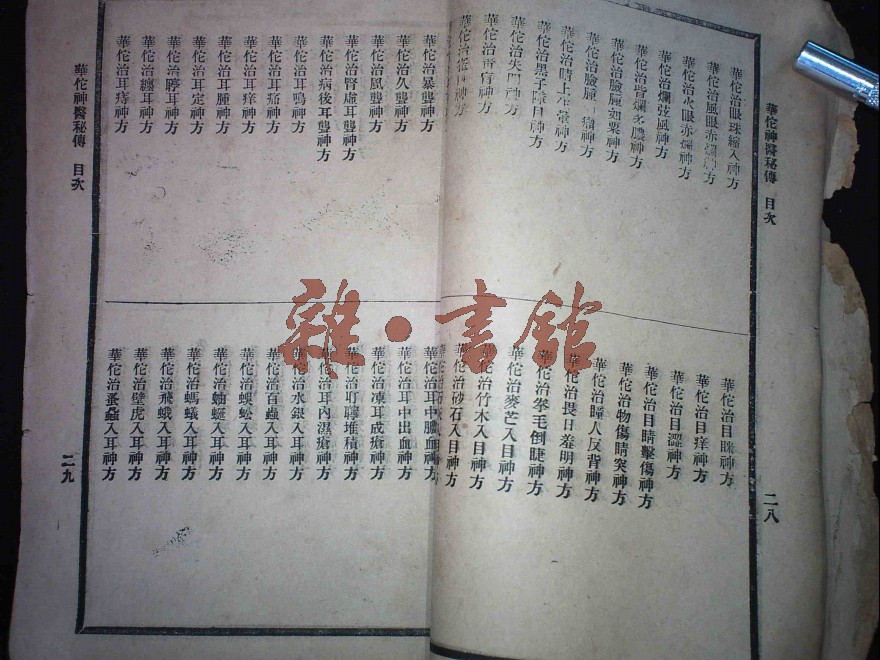 華佗神醫秘傳 目次
二八
華佗治眼珠縮入神方
華佗治風眼赤爛神方
華佗治火眼赤爛神方
華佗治爛弦風神方
華佗治眥爛多膿神方
華佗治臉腫如粟神方
華佗治臉腫神方
華佗治睛上神方
華佗治黑子障目神方
華佗治失明神方
華佗治青盲神方
華佗治神方
華佗治目眯神方
華佗治目痒神方
華佗治目澀神方
華佗治目睛擊傷神方
華佗治物傷睛突神方
華佗治瞳人反背神方
華佗治畏日羞明神方
華佗治拳毛倒睫神方
華佗治麥芒入目神方
華佗治竹木入目神方
華佗治砂石入目神方
華佗治入目神方
華佗治暴聾神方
華佗治久聾神方
華佗治風聾神方
華佗治腎虛耳聾神方
華佗治病後耳聾神方
華佗治耳鳴神方
華佗治耳痛神方
華佗治耳痒神方
華佗治耳腫神方
華佗治耳定神方
華佗治聤耳神方
華佗治纏耳神方
華佗治耳痔神方
華佗治耳中膿血神方
華佗治耳中出血神方
華佗治凍耳成瘡神方
華佗治耵聹堆積神方
華佗治耳內濕瘡神方
華佗治水銀入耳神方
華佗治百蟲入耳神方
華佗治蜈蚣入耳神方
華佗治蚰蜒入耳神方
華佗治螞蟻入耳神方
華佗治飛蛾入耳神方
華佗治壁虎入耳神方
華佗治蚤蝨入耳神方
華佗神醫秘傳 目次
二九
雜·書館